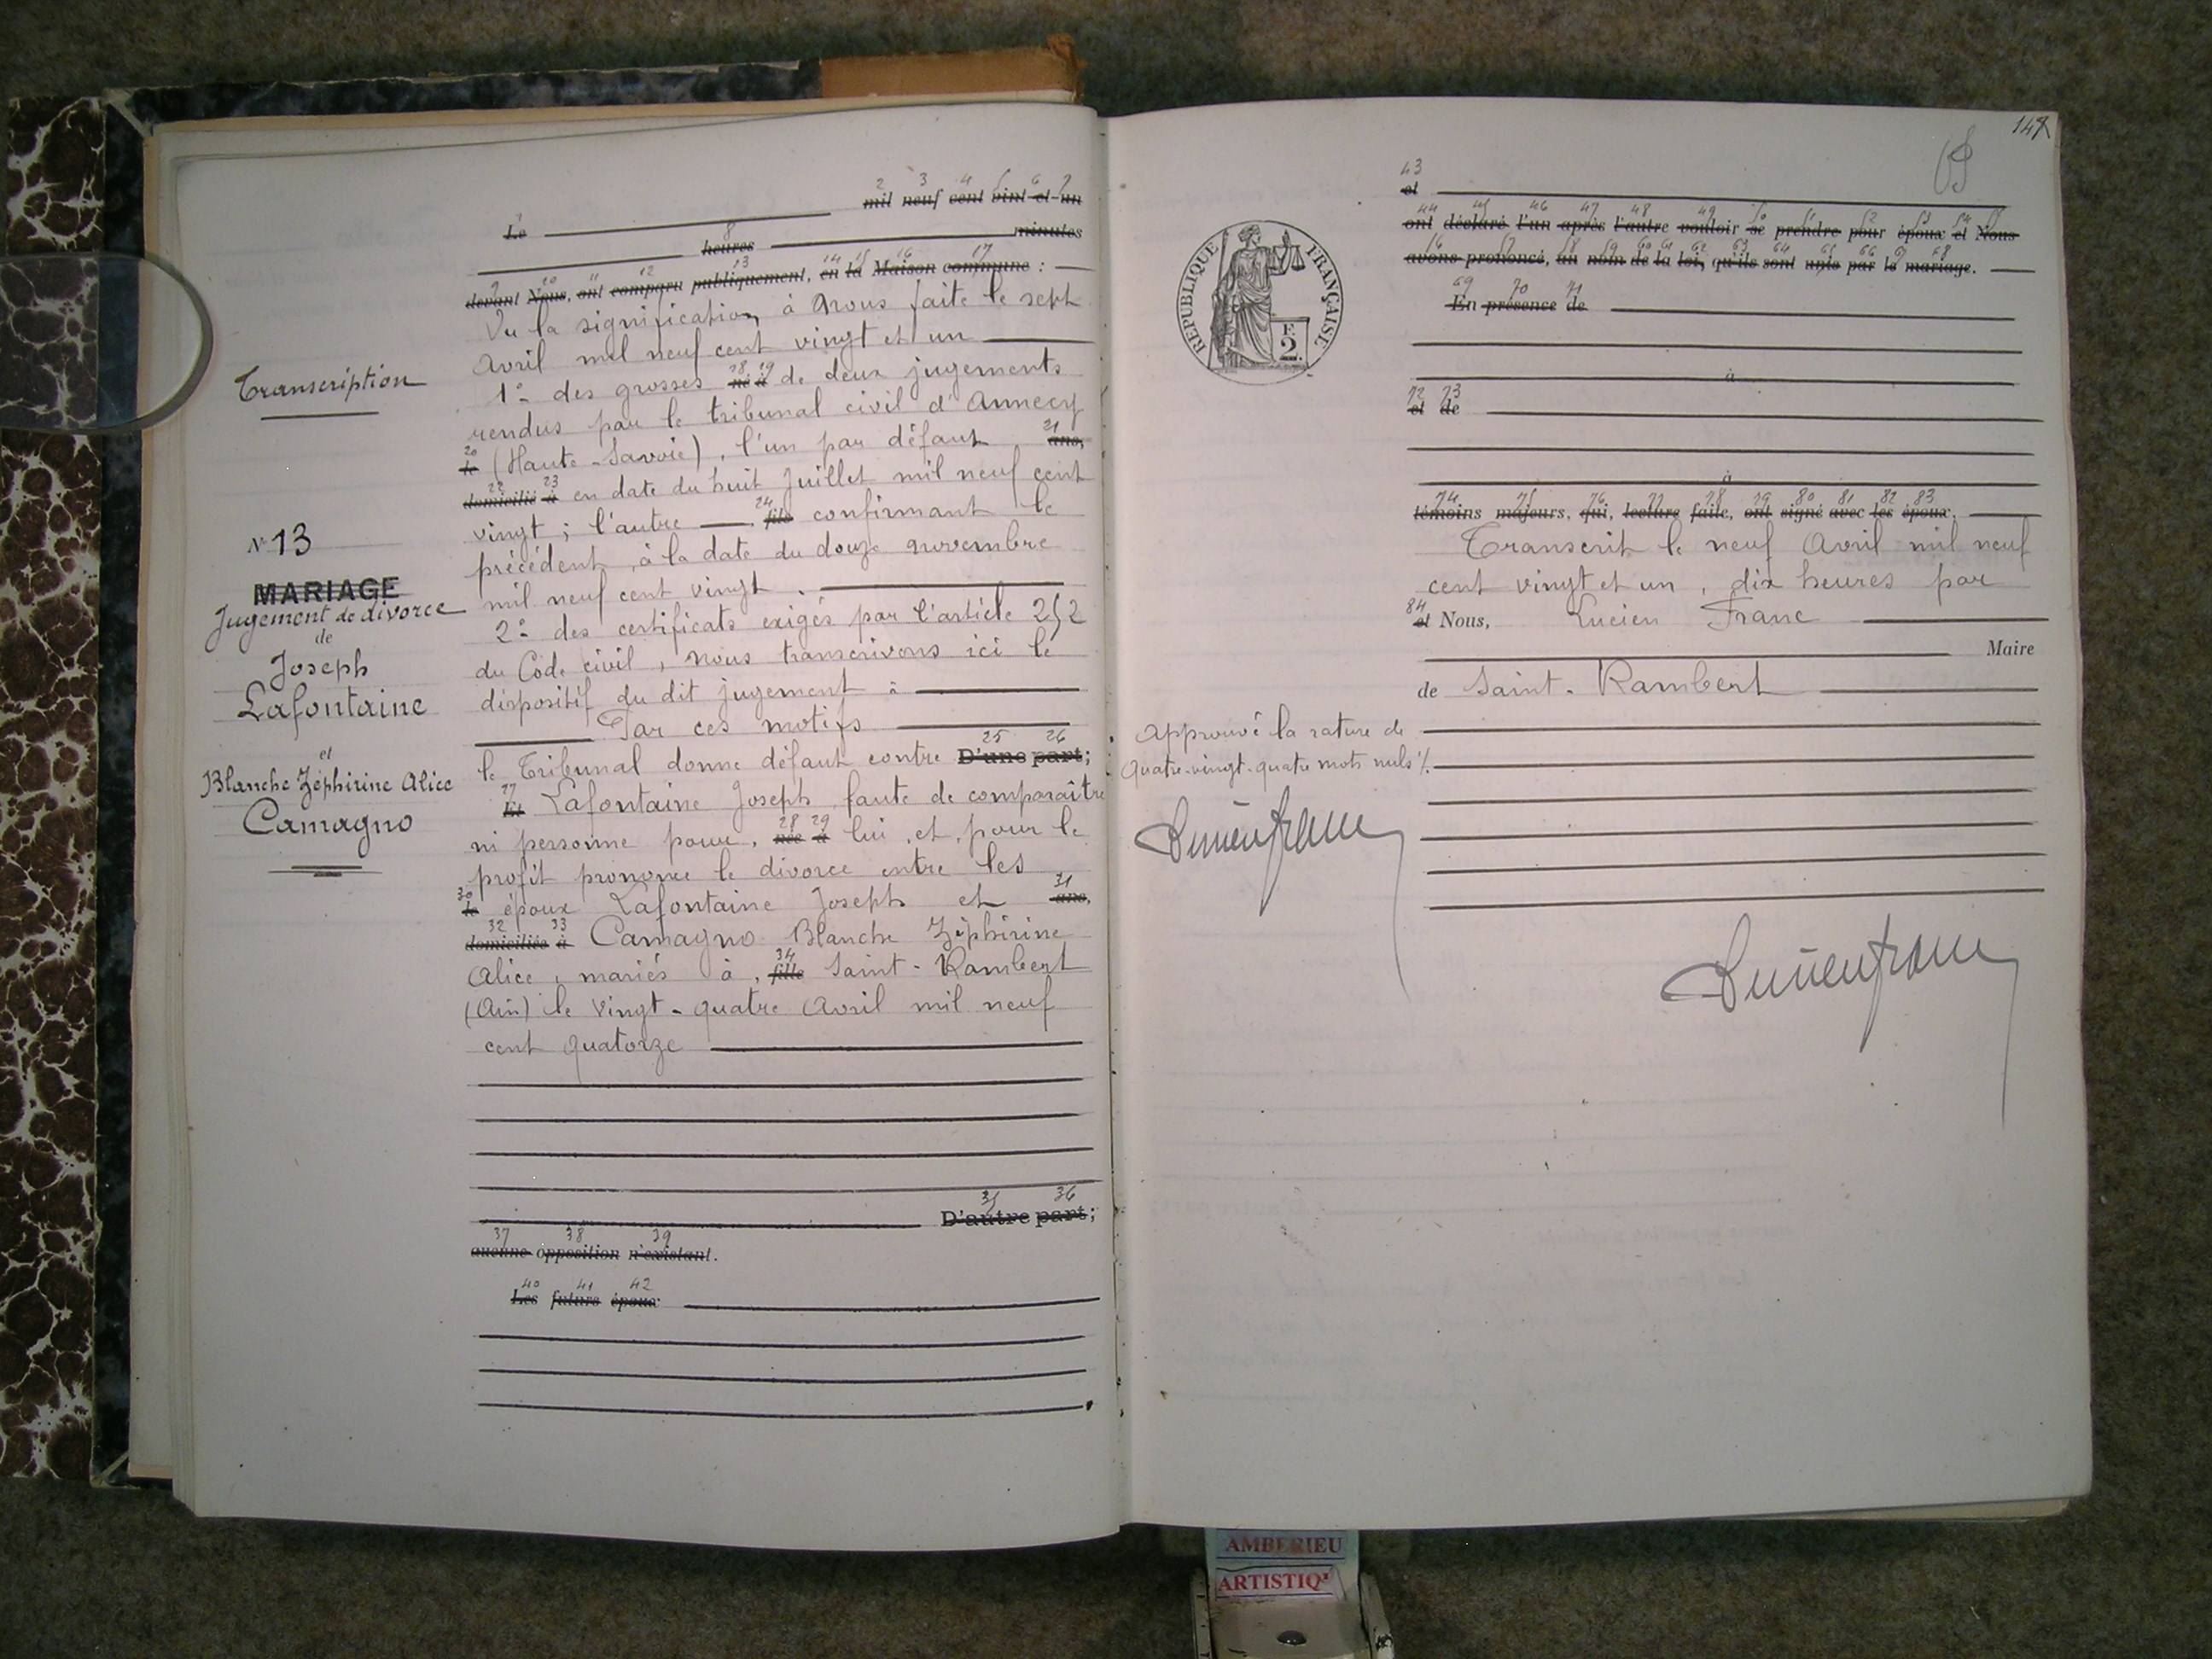 Transcription
N° 13
MARIAGE
Jugement de divorce
de
Joseph
Lafontaine
et
Blanche Zéphirine Alice
Camagno
2 3 4 5 6 7
Le mil neuf cent vint-et-un
8
heures minutes
9 10 11 12 13 14 15 16 17
devant Nous, ont comparu publiquement, en la Maison commune :
Vu la signification à Nous faite le sept
Avril mil neuf cent vingt et un
1° des grosses 18 né 19 à de deux jugements
rendus par le tribunal civil d'Annecy
20 le (Haute-Savoie), l'un par défaut 21 ans,
22 domicilié 23 à en date du huit Juillet mil neuf cent
vingt ; l'autre 24 fils confirmant le
précédent, à la date du douze novembre
mil neuf cent vingt.
2° des certificats exigés par l'article 252
du Code civil, nous transcrivons ici le
dispositif du dit jugement :
Par ces motifs
le Tribunal donne défaut contre 25 D'une 26 part;
27 Et Lafontaine Joseph, faute de comparaître
ni personne pour, 28 née 29 à lui, et, pour le
profit prononce le divorce entre les
30 le époux Lafontaine Joseph et 31 ans,
32 domiciliée 33 à Camagno Blanche Zéphirine
Alice, mariés à, 34 fille Saint-Rambert
(Ain) le vingt-quatre Avril mil neuf
cent quatorze
35 36
D'autre part;
37 38 39
aucune opposition n'existant.
40 41 42
Les futurs époux
147
43
et
44 45 46 47 48 49 50 51 52 53 54 55
ont déclaré l'un après l'autre vouloir se prendre pour époux et Nous
56 57 58 59 60 61 62 63 64 65 66 67 68
avons prononcé, au nom de la loi, qu'ils sont unis par le mariage.
69 70 71
En présence de
à
72 73
et de
à
74 75 76 77 78 79 80 81 82 83
témoins majeurs, qui, lecture faite, ont signé avec les époux.
Transcrit le neuf Avril mil neuf
cent vingt et un, dix heures par
84 et Nous, Lucien Franc
Maire
de Saint-Rambert
Approuvé la rature de
quatre-vingt-quatre mots nuls %.
Lucien Franc
Lucien Franc
REPUBLIQUE FRANÇAISE
F.
2.
AMBERIEU
ARTISTIQ